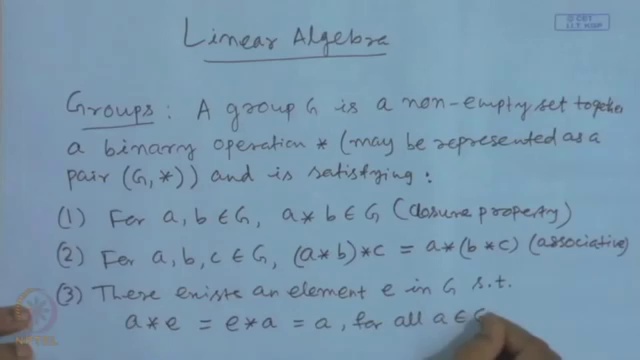 Linear Algebra
© CET
I.I.T. KGP
Groups : A group G is a non-empty set together
a binary operation * (may be represented as a
pair (G, *)) and is satisfying :
(1) For a, b ∈ G, a * b ∈ G (closure property)
(2) For a, b, c ∈ G, (a * b) * c = a * (b * c) (associative)
(3) There exists an element e in G s.t.
a * e = e * a = a, for all a ∈ G
NPTEL